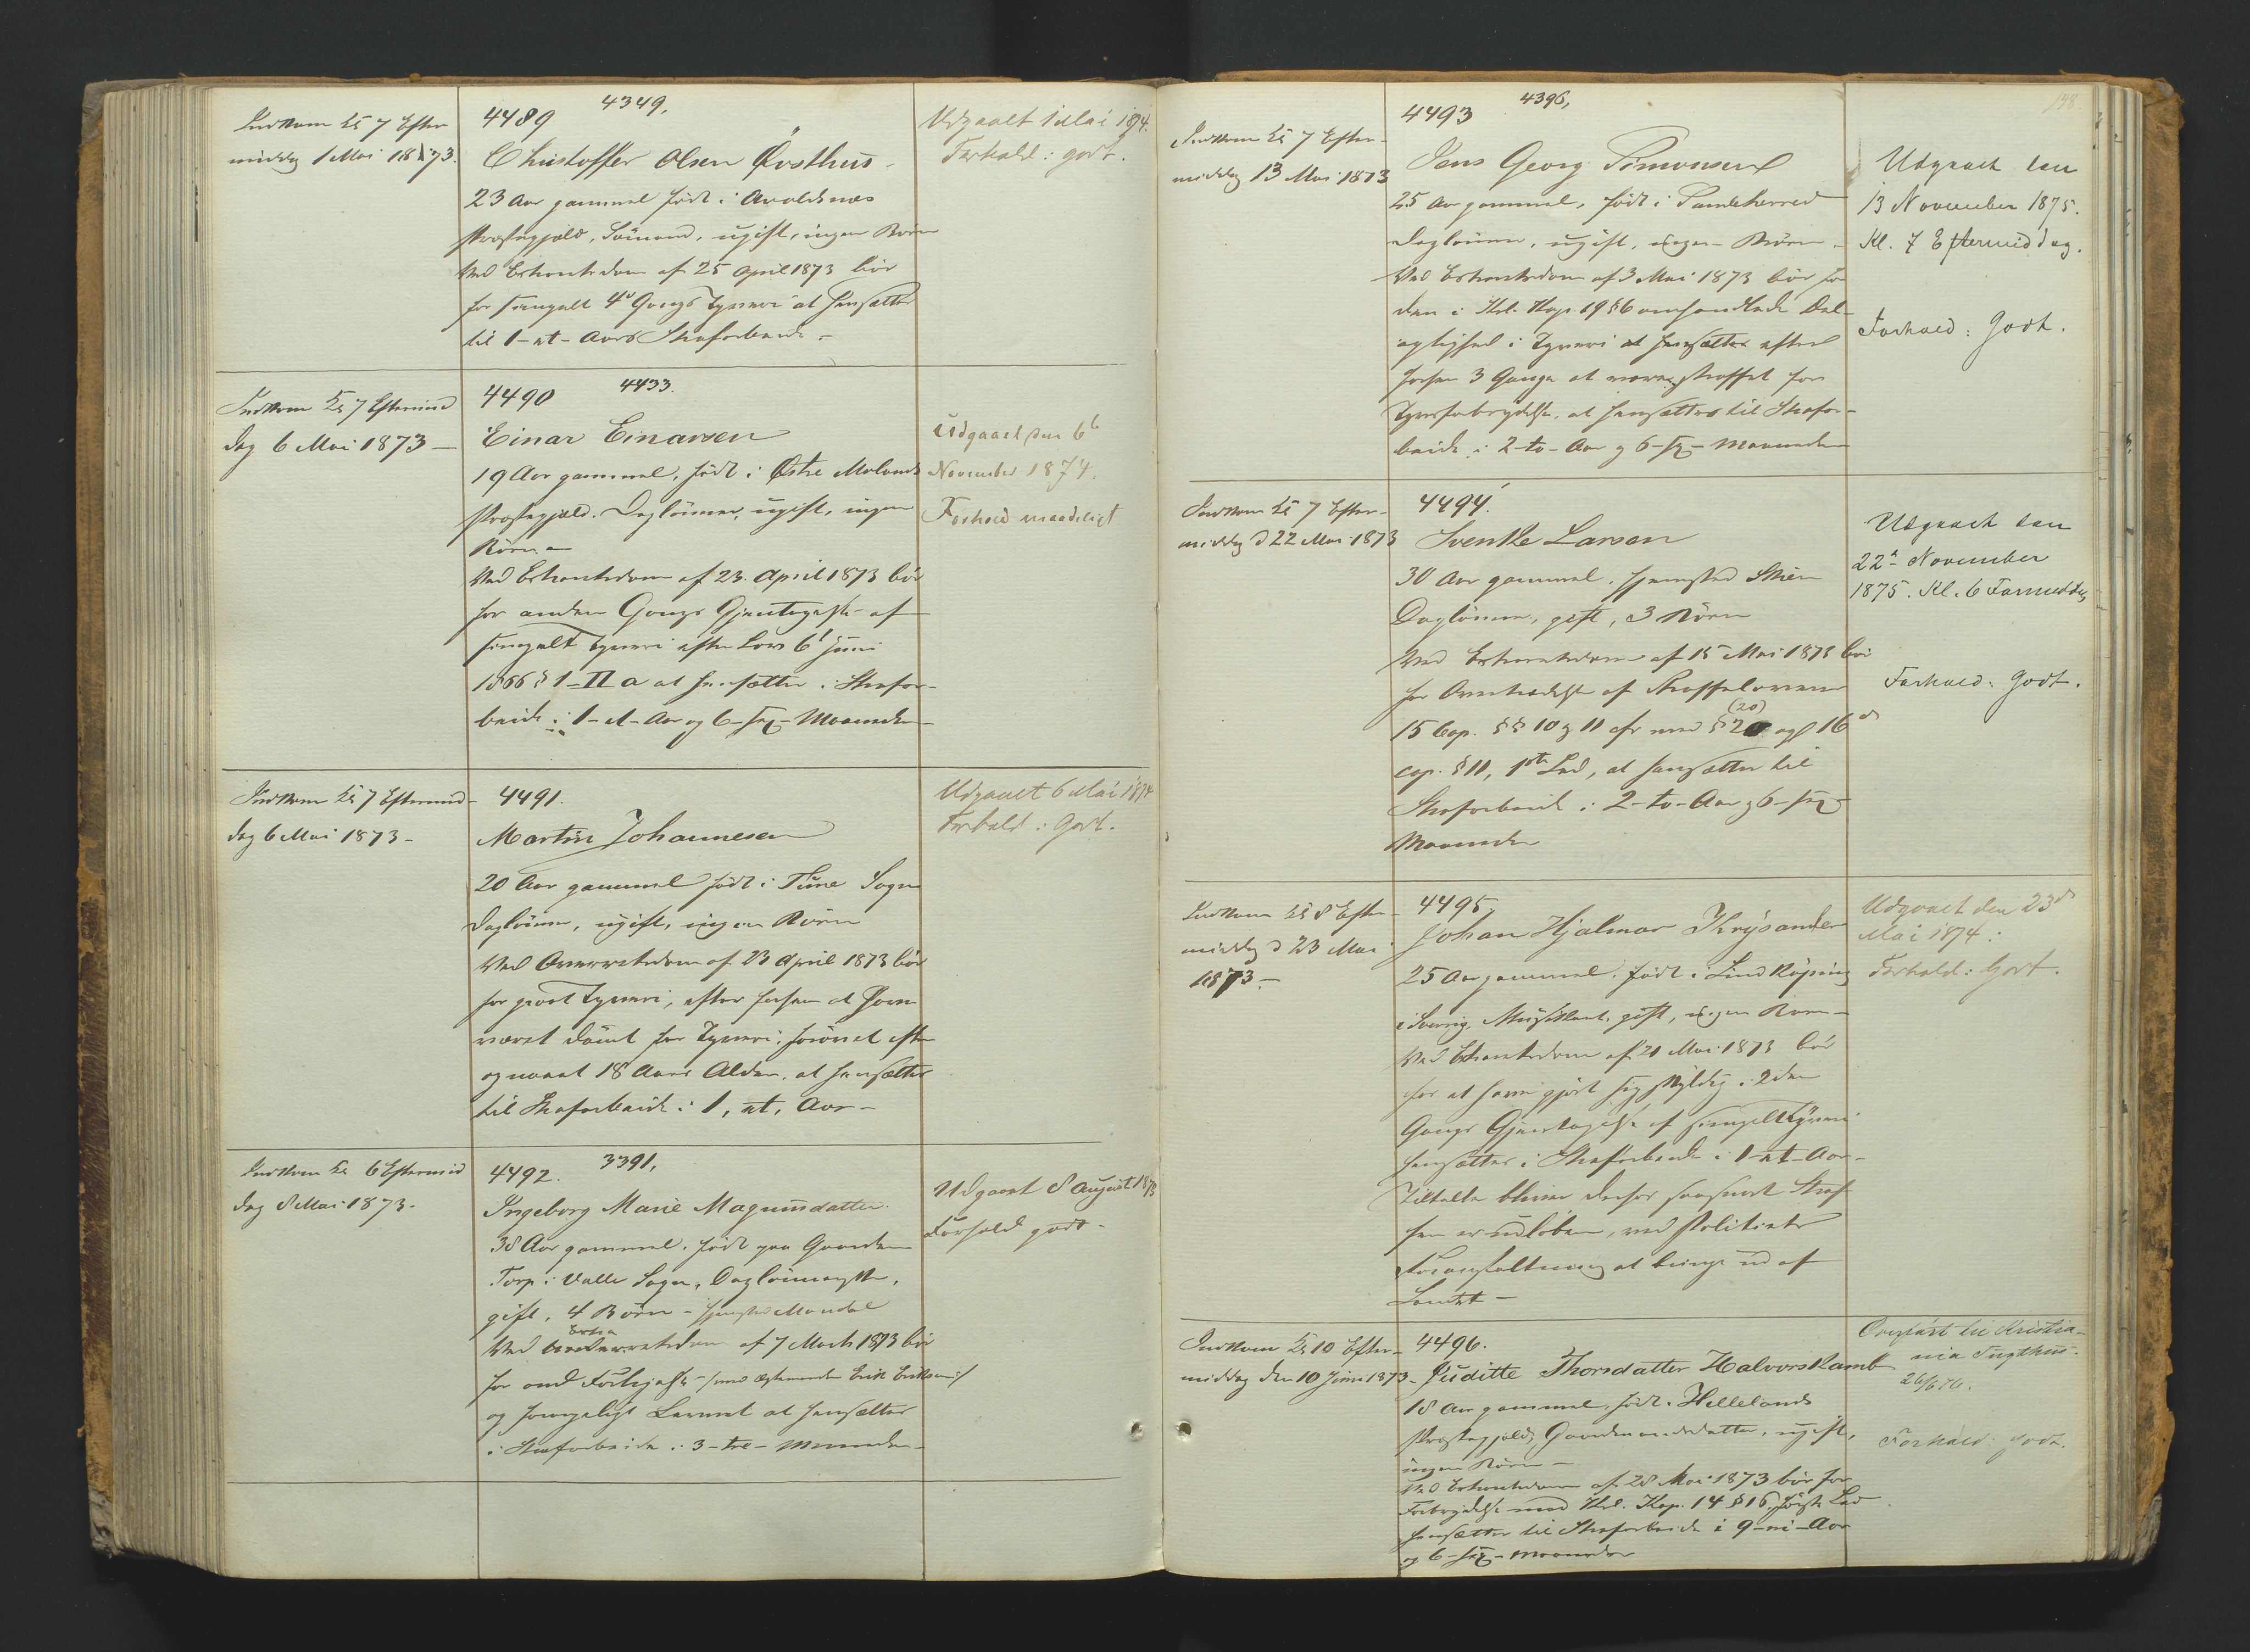 Indkom Kl 7 Efter
middag 1 Mai 1873.
4489
4349,
Christoffer Olsen Østhus
23 Aar gammel født i Avaldsnæs
Præstegjæld, Sömand, ugift, ingen Børn
Ved Extraretsdom af 25 April 1873 bör
for simpelt 4de Gangs Tyveri at hensættes
til 1-et-Aars Strafarbeide.
Udgaaet 1 Mai 1874.
Forhold: godt.
Indkom Kl 7 Eftermid
dag 6 Mai 1873
4490
4433.
Einar Einarsen
19 Aar gammel, född i Østre Molands
Præstegjæld. Daglönner, ugift, ingen
Börn
Ved Extraretsdom af 23. April 1873 bör
for anden Gangs Gjentagelse af
simpelt Tyveri efter Lov 6t Juni
1866 § 1-II a at hensættes i Strafar-
beide i 1-et-Aar og 6-sex-Maaneder
Udgaaet den 6t
November 1874.
Forhold maadeligt
Indkom Kl 7 Eftermid-
dag 6 Mai 1873-
4491.
Martin Johannesen
20 Aar gammel född i Tune Sogn
Daglönner, ugift, ingen Börn
Ved Overretsdom af 23 April 1873 bör
for grovt Tyveri, efter forhen at have
været dömt for Tyveri, forövet efter
opnaaet 18 Aars Alder, at hensættes
til Strafarbeide i 1, et, Aar-
Udgaaet 6 Mai 1874
Forhold: Godt.
Indkom Kl 6 Eftermid
dag 8 Mai 1873.
4492.
3391,
Ingeborg Marie Magnusdatter
38 Aar gammel, född paa Gaarden
Torp i Valle Sogn, Daglönnerske,
gift, 4 Börn - hjemsted Mandal
Extra
Ved retsdom af 7 Marts 1873 bör
for ond (med ægtemanden Erik Eriksen)
og Levnet at hensættes
i Strafarbeide i 3-tre-Maaneder-
Udgaaet 8 August 1873
Forhold godt-
148
Indkom Kl 7 Efter-
middag 13 Mai 1873
4493
4396,
Jens Georg Simonsen
25 Aar gammel, född i Bambleherred
Daglönner, ugift, ingen Börn
Ved Extraretsdom af 3 Mai 1873 bör for
den i Krl. Kap 19 § 6 omhandlede Del-
agtighed i Tyveri at hensættes efter
forhen 3 Gange at være straffet for
Tyvsforbrydelse, at hensættes til Strafar-
beide i 2-to-Aar og 6-sex-Maaneder
Udgaaet den
13 November 1875.
Kl. 7 Eftermiddag.
Forhold: Godt.
Indkom Kl 7 Efter-
middag d 22 Mai 1873
4494.
Svenke Larsen
30 Aar gammel, hjemsted Skien
Daglönner, gift, 3 Börn
Ved Extraretsdom af 15 Mai 1873 bör
for Overtrædelse af Straffelovens
15 Cap. §§ 10 og 11 cfr med § 20 (20) og 16d
cap. § 11, 1ste Led, at hensættes til
Strafarbeide i 2-to-Aar og 6-sex-
Maaneder
Udgaaet den
22d November
1875. Kl. 6 Formiddag
Forhold: Godt.
Indkom Kl 8 Efter-
middag d 23 Mai
1873-
4495,
Johan Hjalmar Krysander
25 Aar gammel, född i Lindköping
i Sverrig, Musikant, gift, ingen Born-
Ved Extraretsdom af 21 Mai 1873 bör
for at have gjort sig skyldig i 2den
Gangs Gjentagelse af simpelt Tyveri
hensættes i Strafarbeide i 1-et-Aar-
Tiltalte bliver derhos saasnart Straf
fen er udlöben, ved Politiets
Foranstaltning at bringe ud af
Landet-
Udgaaet den 23d
Mai 1874:
Forhold: Godt.
Indkom Kl 10 Efter-
middag den 10 Juni 1873-
4496.
Juditte Thorsdatter Halvorskamb
18 Aar gammel, född i Hellelands
Præstegjæld, Gaardmandsdatter, ugift,
ingen Börn-
Ved Extraretsdom af 28 Mai 1873 bör for
Forbrydelse mod Krl. Kap. 14 § 16, förste Led
hensættes til Strafarbeide i 9-ni-Aar
og 6-sex-Maaneder
Overfört til Kristia-
nia Tugthus.
26/6 76.
Forhold: godt.